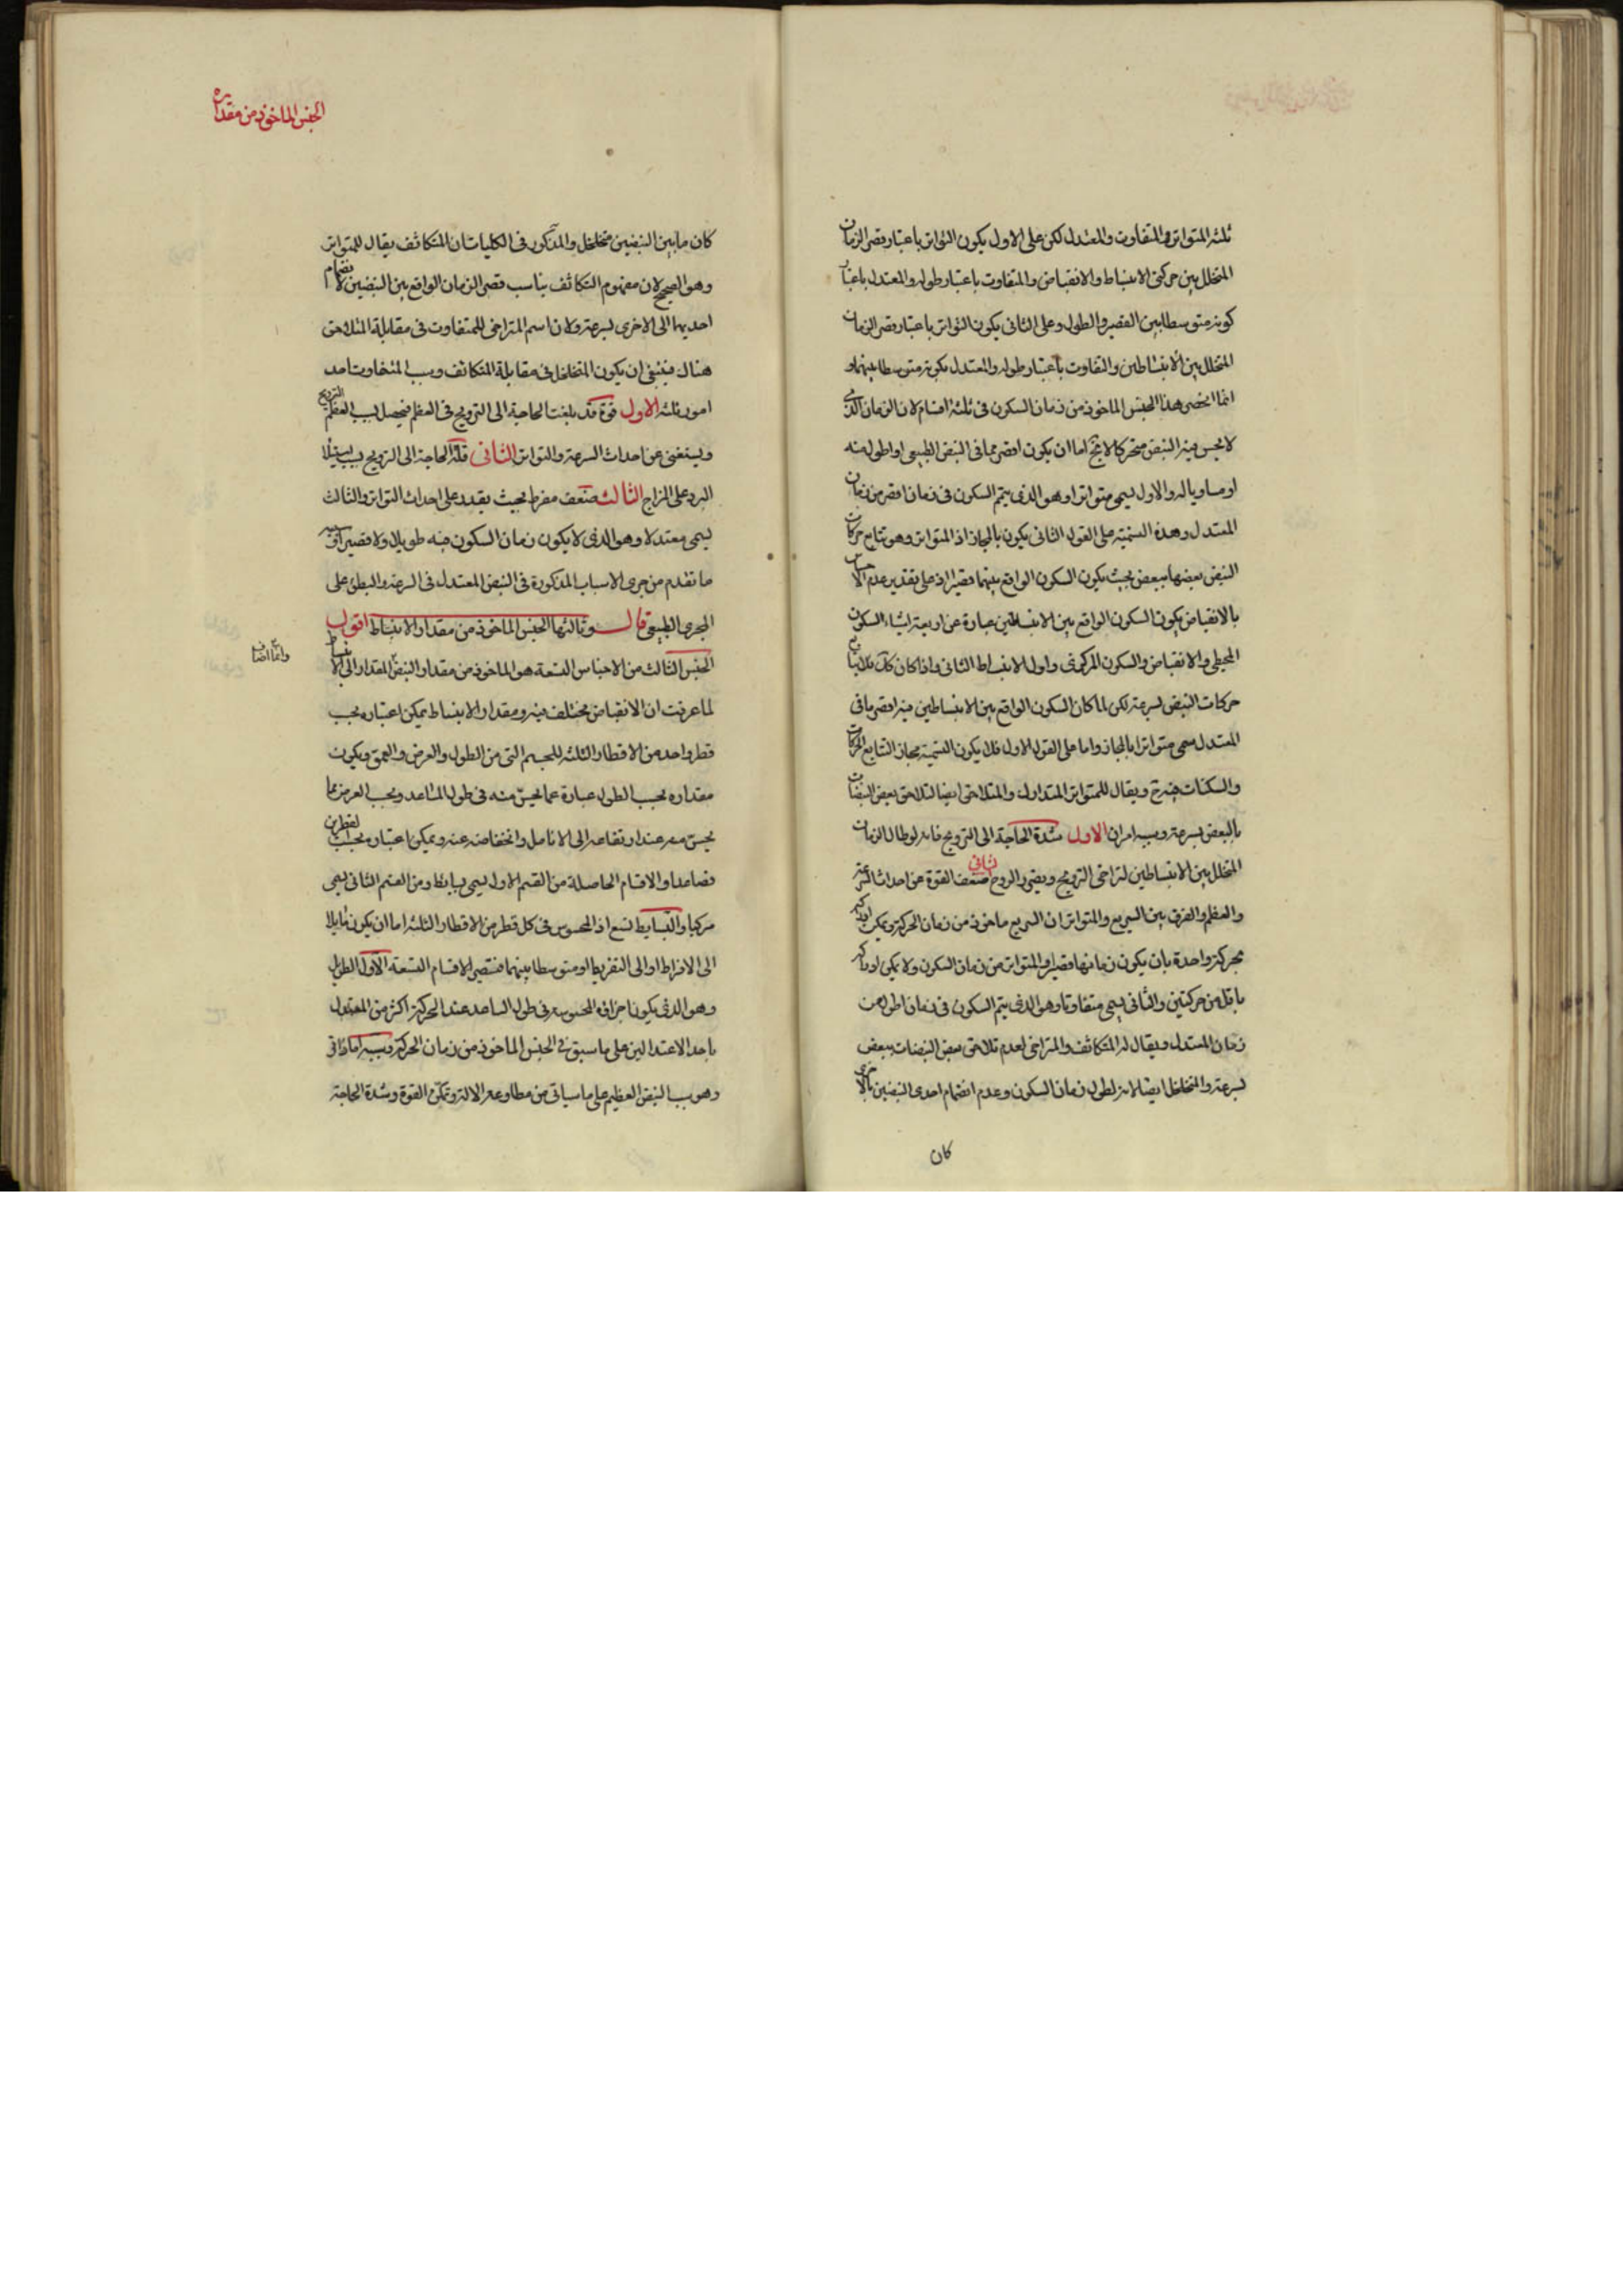 ثلثه المتواتر والمتفاوت والمعتدل لكن على الاول يكون التواتر باعتبار قصر الزمان
المتخلل بين حركتى الانبساط والانقباض والمتفاوت باعتبار طوله والمعتدل باعتبار
كونه متوسطا بين القصير والطول وعلى الثانى يكون التواتر باعتبار قصر الزمان
المتخلل بين الانبساطين والتفاوت باعتبار طوله والمعتدل بكونه متوسطا بينهما و
انما انحصر هذا الجنس الماخوذ من زمان السكون فى ثلثه اقسام لان الزمان الذى
لا يحس فيه النبض متحركا لا يخ اما ان يكون اقصر مما فى النبض الطبيعى او اطول منه
او مساويا له والاول يسمى متواترا وهو الذى يتم السكون فى زمان اقصر من زمان
المعتدل وهذه التسمية على القول الثانى يكون بالمجاز اذ المتواتر وهو تتابع حركات
النبض بعضها ببعض بحيث يكون السكون الواقع بينهما قصيرا اذ على تقدير عدم الاحساس
بالانقباض يكون السكون الواقع بين الانبساطين عبارة عن اربعة اشياء السكون
المحيطى والانقباض والسكون المركزى واول الانبساط الثانى واذا كان كك فلا يتتابع
حركات النبض بسرعة لكن لما كان السكون الواقع بين الانبساطين فيه اقصر ما فى
المعتدل سمى متواترا بالمجاز واما على القول الاول فلا يكون التسمية مجاز التتابع الحركات
والسكنات حينئذ ويقال للمتواتر المتدارك والمتلاحق ايضا لتلاحق بعض النبضات
بالبعض بسرعة وسببه امران الاول شدة الحاجة الى الترويح فانه لو طال الزمان
المتخلل بين الانبساطين لتراخى الترويح ويضر الروح ثانى ضعف القوة عن احداث السرعة
والعظم والفرق بين السريع والمتواتر ان السريع ماخوذ من زمان الحركة ويمكن ادراكه
بحركة واحدة بان يكون زمانها قصيرا والمتواتر من زمان السكون ولا يمكن ادراكه
باقل من حركتين والثانى يسمى متفاوتا وهو الذى يتم السكون فى زمان اطول من
زمان المعتدل ويقال له المتكاثف والمتراخى لعدم تلاحق بعض النبضات ببعض
بسرعة والمتخلخل ايضا لانه لطول زمان السكون وعدم انضمام احدى النبضين بالاخرى
كان
الجنس الماخوذ من مقداره
كان ما بين النبضين متخلخل والمذكور فى الكليات ان المتكاثف يقال للمتواتر
وهو الصحيح لان مفهوم التكاثف يناسب قصر الزمان الواقع بين النبضين لانضمام
احديهما الى الاخرى بسرعة ولان اسم المتراخى للمتفاوت فى مقابلة المتلاحق
هناك فينبغى ان يكون المتخلخل فى مقابلة المتكاثف وسبب المتفاوت احد
امور ثلثه الاول قوة قد بلغت الحاجة الى الترويح فى العظم فيحصل بسبب العظم الترويح
ويستغنى عن احداث السرعة والتواتر الثانى قلة الحاجة الى الترويح بسبب استيلا
البرد على المزاج الثالث ضعف مفرط بحيث يقدر على احداث التواتر والثالث
يسمى معتدلا وهو الذى لا يكون زمان السكون فيه طويلا ولا قصيرا وسببه
ما تقدم من جرى الاسباب المذكورة فى النبض المعتدل فى السرعة والبطئ على
المجرى الطبيعى قال وثالثها الجنس الماخوذ من مقدار الانبساط اقول
الجنس الثالث من الاجناس التسعة هو الماخوذ من مقدار النبض المقدار الى الانبساط
وانما اضاف
لما عرفت ان الانقباض مختلف فيه ومقدار الانبساط يمكن اعتباره بحسب
قطر واحد من الاقطار الثلثه للجسم التى من الطول والعرض والعمق ويكون
مقداره بحسب الطول عبارة عما يحس منه فى طول الساعد وبحسب العرض مما
يحس معه عند ارتفاعه الى الانامل وانخفاضه عنه ويمكن اعتباره بحسب القطرين
فصاعدا والاقسام الحاصلة من القسم الاول يسمى بسايط ومن القسم الثانى يسمى
مركبا والبسايط تسع اذ المحسوس فى كل قطر من الاقطار الثلثه اما ان يكون مايلا
الى الافراط او الى التفريط او متوسطا بينهما فتصير الاقسام التسعة الاول الطويل
وهو الذى يكون اجزاؤه المحسوسة فى طول الساعد عند الحركة اكثر من المعتدل
باحد الاعتدالين على ما سبق فى الجنس الماخوذ من زمان الحركة وسببه اما ذاتى
وهو سبب النبض العظيم على ما سياتى من مطاوعة الالة وتمكن القوة وشدة الحاجة